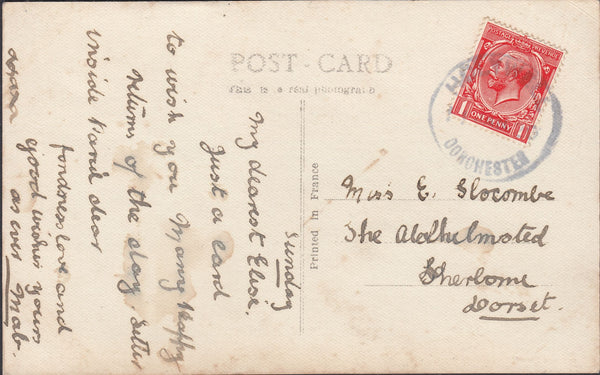 POST-CARD
This is a real photograph
Printed in France
Sunday
My dearest Elsie.
Just a card
to wish you Many Happy
returns of the day letter
inside Parcel dear
fondest love and
good wishes yours
as ever Mab.
xxxx
Miss E. Slocombe
The Aldhelmsted
Sherborne
Dorset.
POSTAGE REVENUE
1 ONE PENNY 1
DORCHESTER